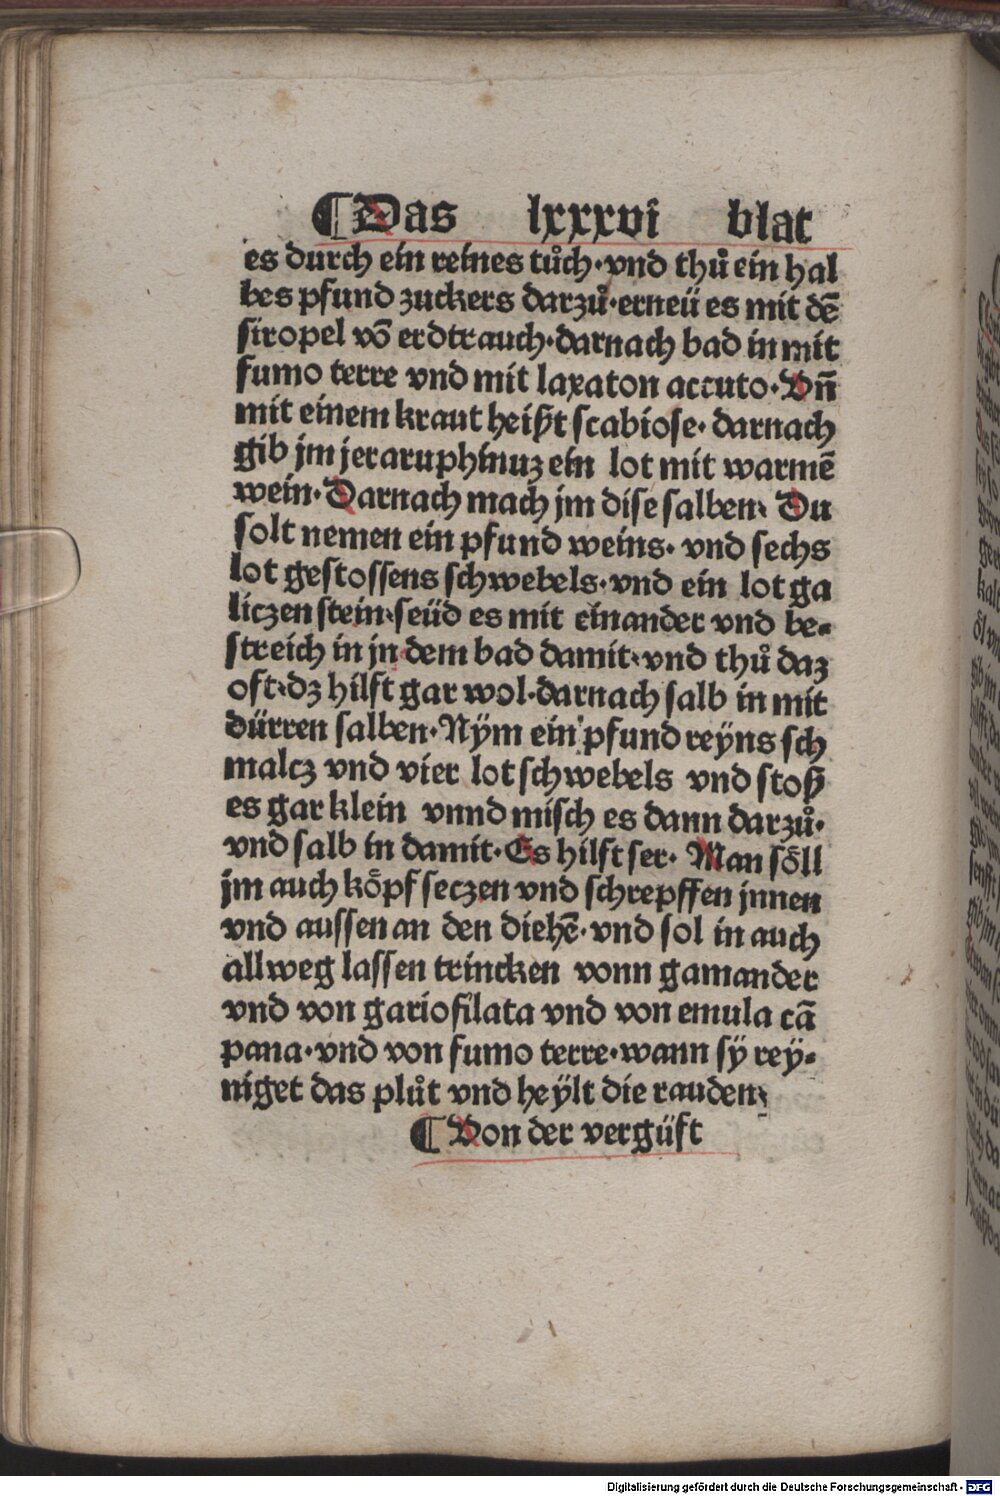 ¶Das lxxxvi blat
es durch ein reines tůch·vnd thů ein hal
bes pfund zuckers darzů·erneü es mit dẽ
siropel võ erdtrauch·darnach bad in mit
fumo terre vnd mit laxaton accuto·Vñ
mit einem kraut heißt scabiose·darnach
gib jm jeraruphinuz ein lot mit warmẽ
wein·Darnach mach jm dise salben· Du
solt nemen ein pfund weins·vnd sechs
lot gestossens schwebels·vnd ein lot ga
liczen stein·seüd es mit einander vnd be-
streich in jn dem bad damit·vnd thů daz
oft·dz hilft gar wol·darnach salb in mit
dürren salben·Nÿm ein pfund reÿns sch
malcz vnd vier lot schwebels vnd stoß
es gar klein vnnd misch es dann darzů·
vnd salb in damit·Es hilft ser· Man söll
jm auch köpf seczen vnd schrepffen jnnen
vnd aussen an den diehẽ·vnd sol in auch
allweg lassen trincken vonn gamander
vnd von gariofilata vnd von emula cã
pana·vnd von fumo terre·wann sÿ reÿ-
niget das plůt vnd heÿlt die rauden·
¶ Von der vergüft
Digitalisierung gefördert durch die Deutsche Forschungsgemeinschaft - DFG